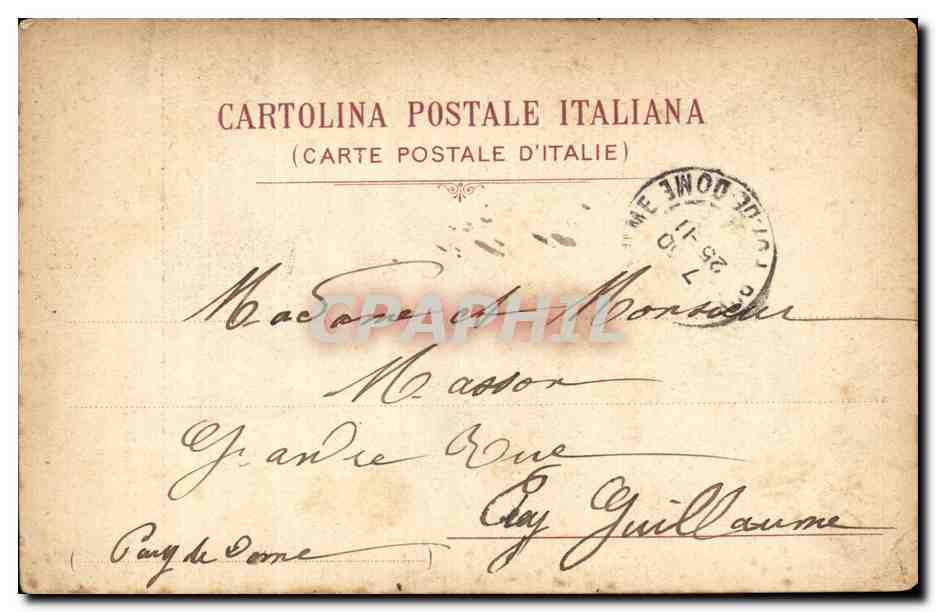 CARTOLINA POSTALE ITALIANA
(CARTE POSTALE D'ITALIE)
DE-DOME
25-11
7
CPAPHIL
Madame et Monsieur
Masson
Grande Rue
Guillaume
Puy de Dome